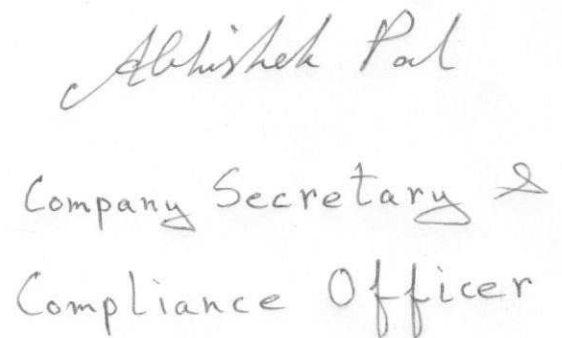 Abhishek Pal
Company Secretary &
Compliance Officer